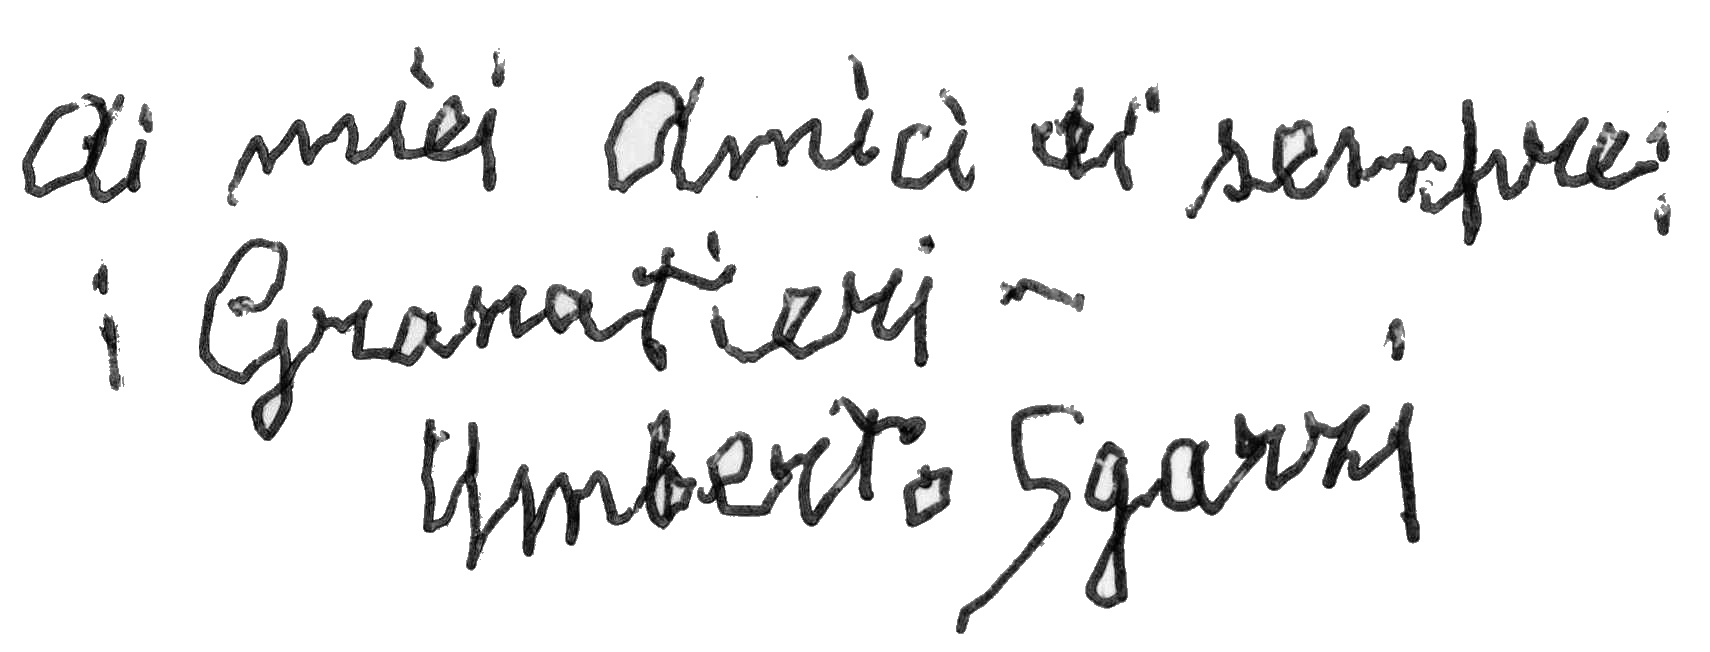 ai miei Amici di sempre:
i Granatieri -
Umberto Sgarzi